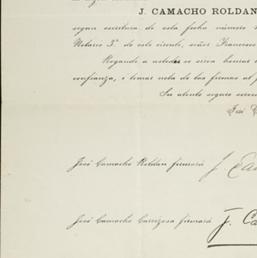 J. CAMACHO ROLDAN
segun escritura de esta fecha número
Notario 3º de este circuito, señor Francisco
Rogando a ustedes se sirva honrar
confianza, i tomar nota de las firmas al
Su atento seguro
José Camacho Roldan firmará J. Ca
José Camacho Carrizosa firmará J. Ca